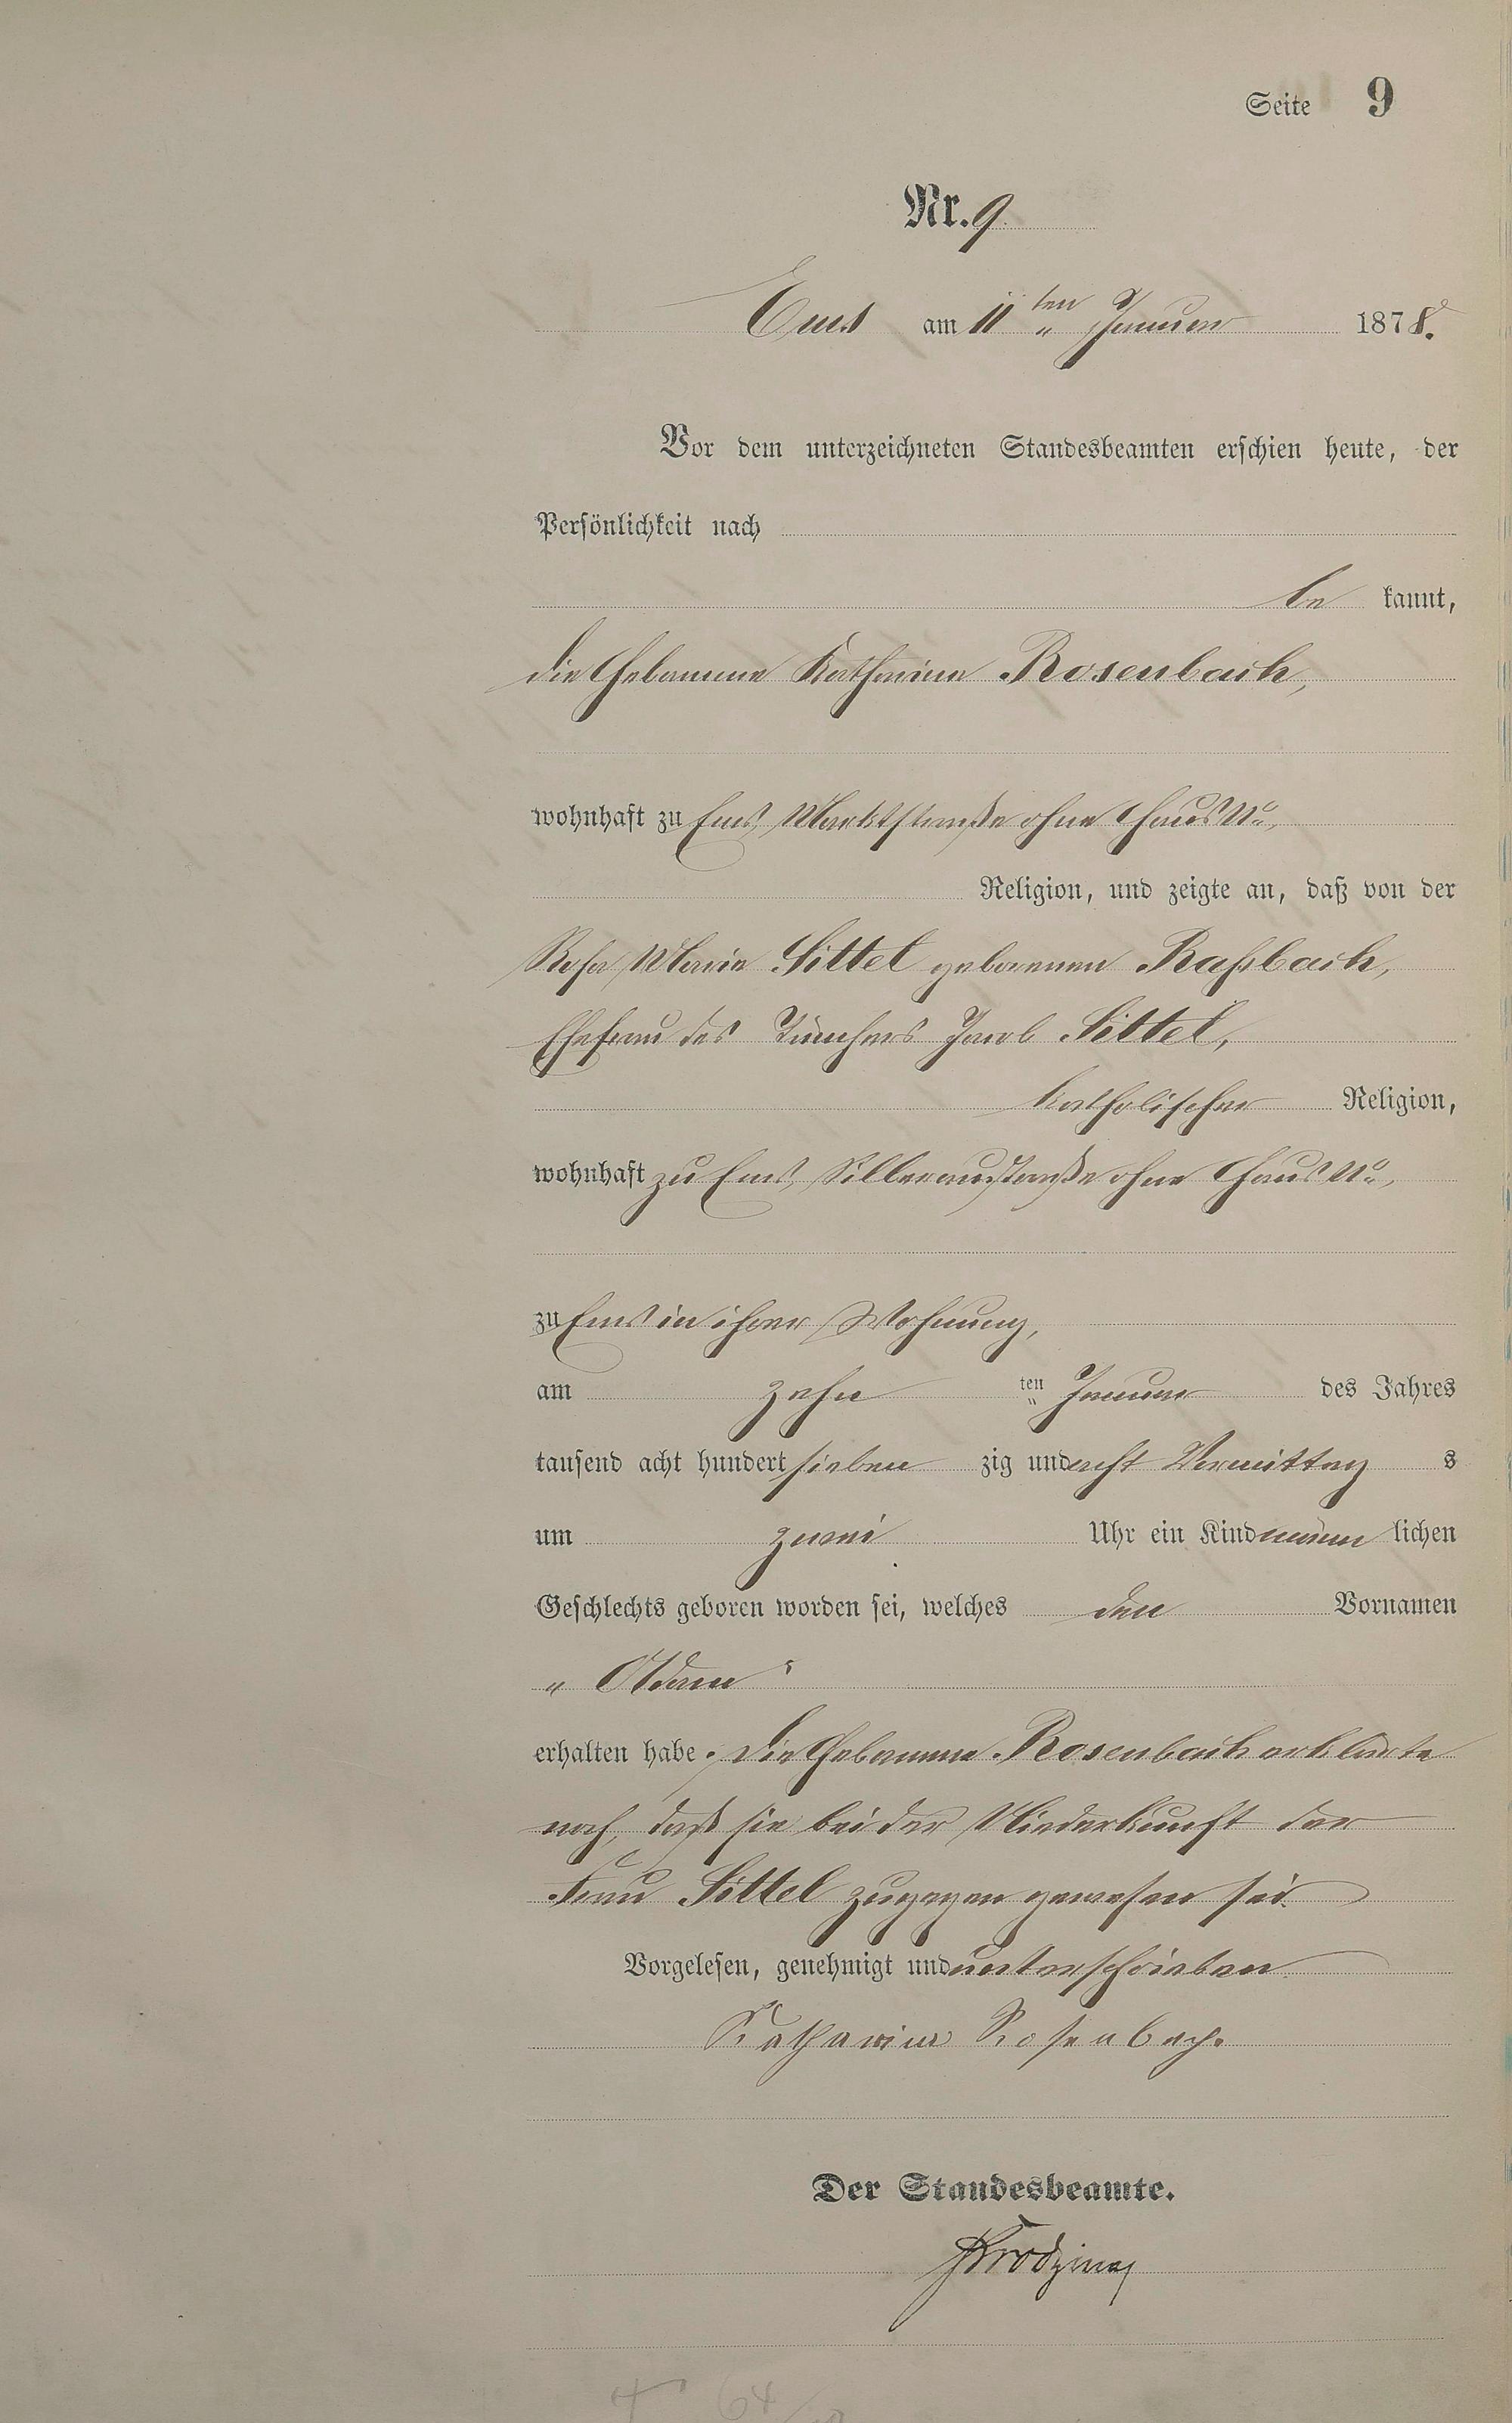 Seite 9
Nr. 9.
Ems am 11ten Januar 1878.
Vor dem unterzeichneten Standesbeamten erschien heute, der
Persönlichkeit nach
be kannt,
die Hebamme Katharina Rosenbach,
wohnhaft zu Ems, Marktstraße ohne Haus No.,
Religion, und zeigte an, daß von der
Rosa Maria Sittel geborenen Raßbach,
Ehefrau des Tünchers Jacob Sittel,
katholischer Religion,
wohnhaft zu Ems, Silberaustraße ohne Haus No.,
zu Ems in ihrer Wohnung,
am zehn ten Januar des Jahres
tausend acht hundert sieben zig und acht Vormittag s
um zwei Uhr ein Kind männ lichen
Geschlechts geboren worden sei, welches den Vornamen
„Adam“
erhalten habe. Die Hebamme Rosenbach erklärte
noch, daß sie bei der Niederkunft der
Frau Sittel zugegen gewesen sei.
Vorgelesen, genehmigt und unterschrieben.
Katharina Rosenbach.
Der Standesbeamte.
64